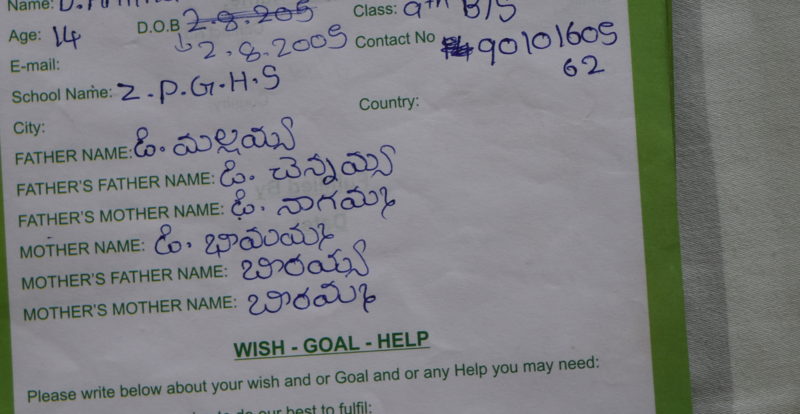 Name: D.
Age: 14 D.O.B 2-8-2005 Class: 9th B/S
↳ 2.8.2005 Contact No 90101605
E-mail: 62
School Name: Z.P.G.H.S
City: Country:
FATHER NAME: డి. మల్లయ్య
FATHER'S FATHER NAME: డి. చెన్నయ్య
FATHER'S MOTHER NAME: డి. నాగమ్మ
MOTHER NAME: డి. భామమ్మ
MOTHER'S FATHER NAME: బీరయ్య
MOTHER'S MOTHER NAME: బీరమ్మ
WISH - GOAL - HELP
Please write below about your wish and or Goal and or any Help you may need:
to do our best to fulfil: